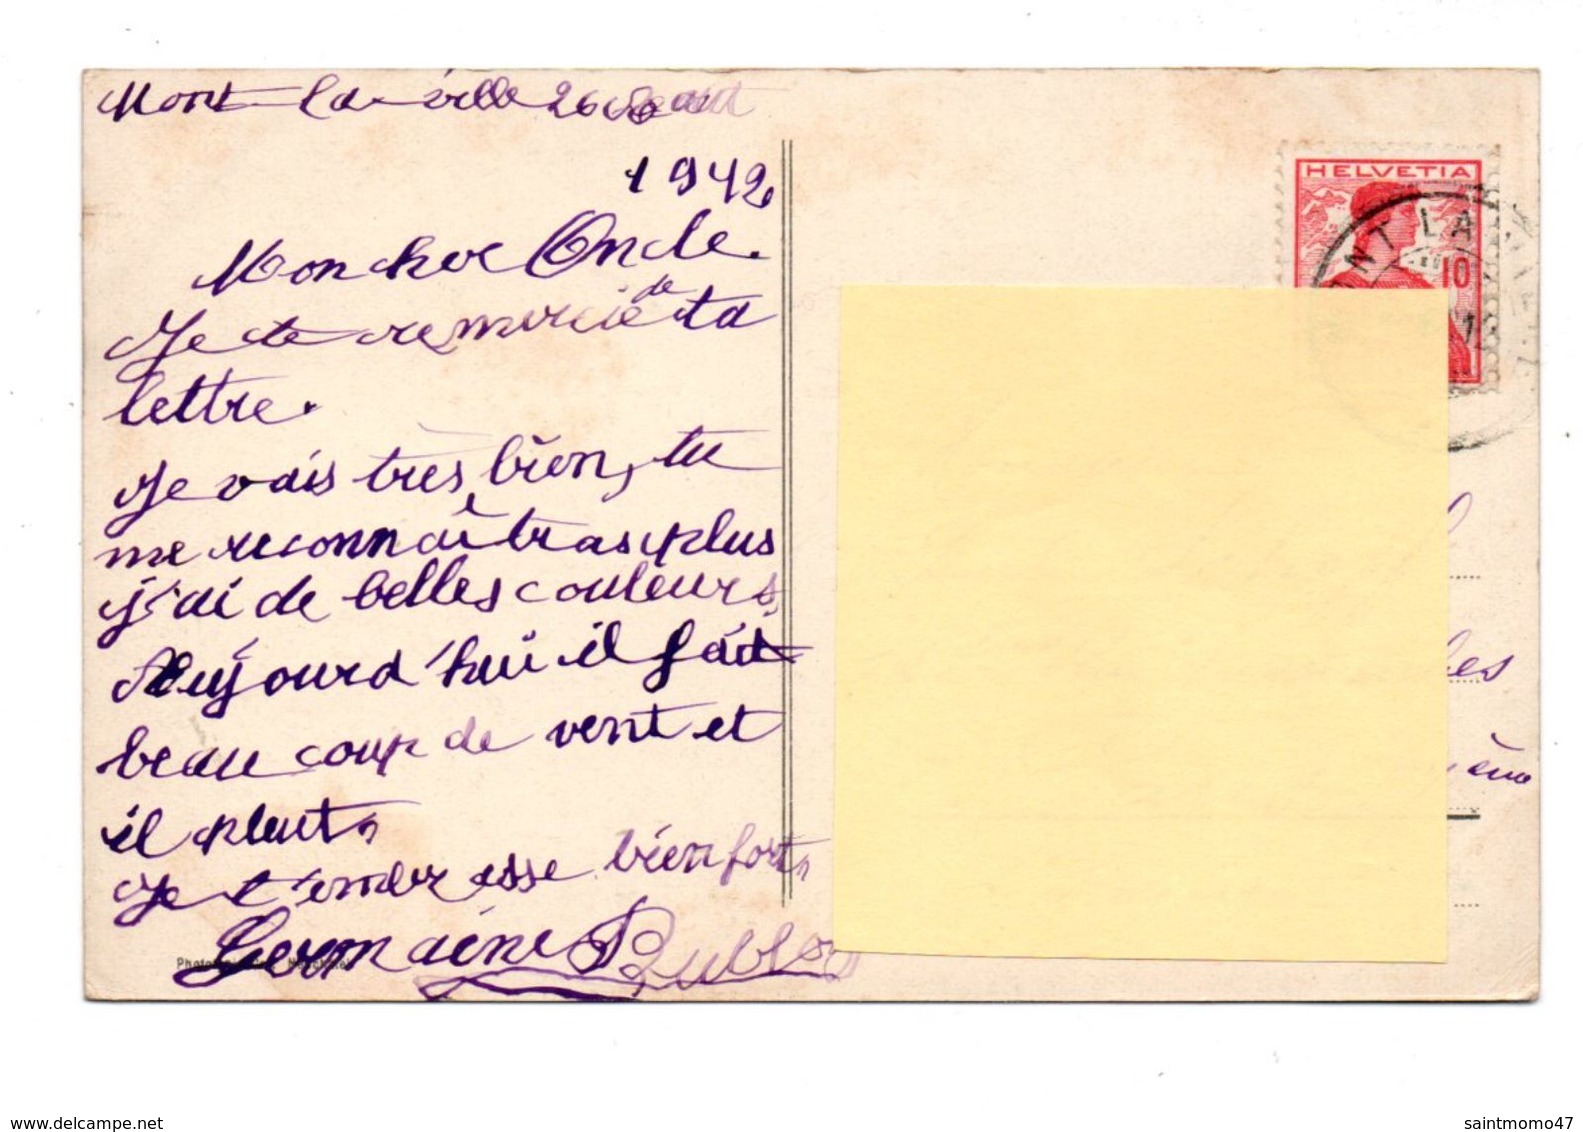 Mont-la-ville 26 aout
1942
Mon cher Oncle.
Je te remercie de ta
lettre.
Je vais très bien, tu
me reconnaîtras plus
j'ai de belles couleurs,
Aujourd'hui il fait
beaucoup de vent et
il pleut,
Je t'embrasse bien fort,
Germaine
HELVETIA
10
NT LA VILLE
www.delcampe.net
saintmomo47